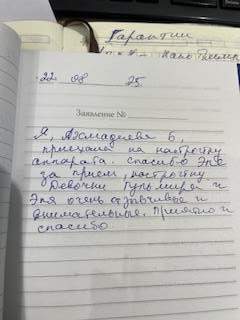 Гарантии
22 08 25
Заявление №
Я, Ахмадиева Б,
приехала на настройку
аппарата. спасибо Эле
за прием, настройку.
Девочки Гульмира и
Эля очень отзывчивые и
внимательные. Приятно и
спасибо